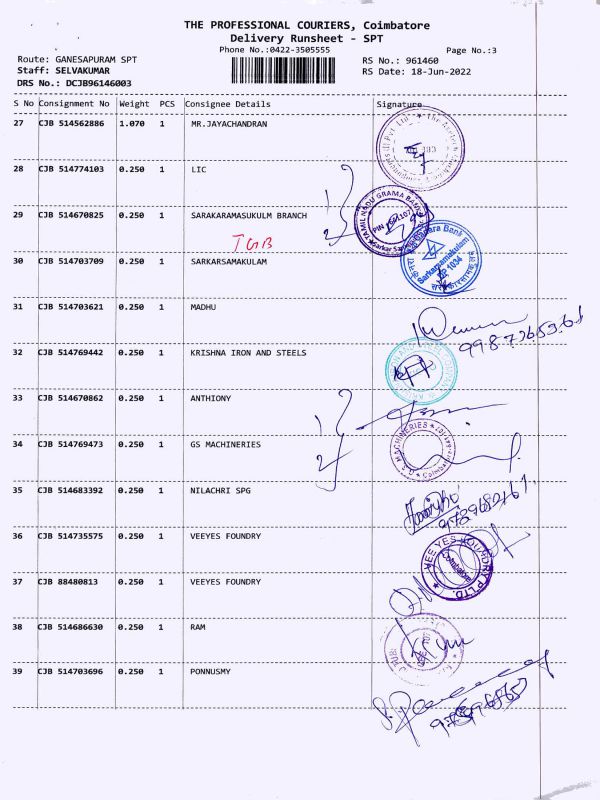 THE PROFESSIONAL COURIERS, Coimbatore
Delivery Runsheet - SPT
Phone No.:0422-3505555
Page No.:3
Route: GANESAPURAM SPT
RS No.: 961460
Staff: SELVAKUMAR
RS Date: 18-Jun-2022
DRS No.: DCJB96146003
S No Consignment No Weight PCS Consignee Details Signature
27 CJB 514562886 1.070 1 MR.JAYACHANDRAN
28 CJB 514774103 0.250 1 LIC
29 CJB 514670825 0.250 1 SARAKARAMASUKULM BRANCH
TGB
30 CJB 514703709 0.250 1 SARKARSAMAKULAM
31 CJB 514703621 0.250 1 MADHU
32 CJB 514769442 0.250 1 KRISHNA IRON AND STEELS
33 CJB 514670862 0.250 1 ANTHIONY
34 CJB 514769473 0.250 1 GS MACHINERIES
35 CJB 514683392 0.250 1 NILACHRI SPG
36 CJB 514735575 0.250 1 VEEYES FOUNDRY
37 CJB 88480813 0.250 1 VEEYES FOUNDRY
38 CJB 514686630 0.250 1 RAM
39 CJB 514703696 0.250 1 PONNUSMY
TAMIL NADU GRAMA BANK
Canara Bank
Sarkarsamakulam
DP 1034
MACHINERIES
Coimbatore
VEE YES FOUNDRY P LTD.
Coimbatore